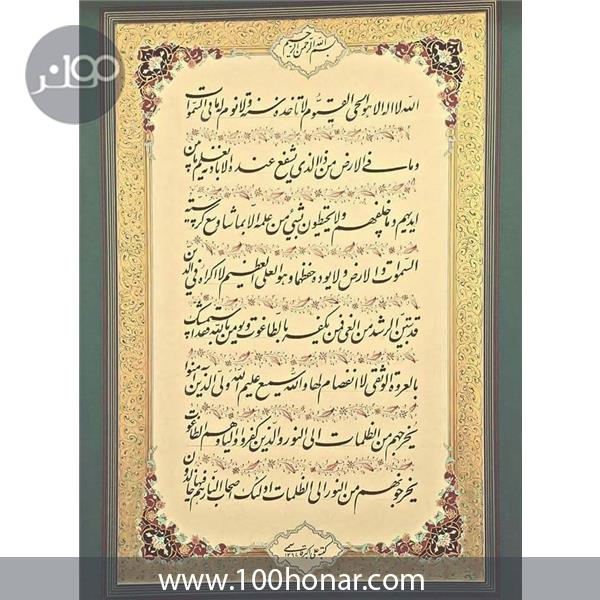 بسم الله الرحمن الرحیم
الله لا اله الا هو الحی القیوم لا تاخذه سنة و لا نوم له ما فی السموات
و ما فی الارض من ذا الذی یشفع عنده الا باذنه یعلم ما بین
ایدیهم و ما خلفهم و لا یحیطون بشیئی من علمه الا بما شاء وسع کرسیه
السموات و الارض و لا یوده حفظهما و هو العلی العظیم لا اکراه فی الدین
قد تبین الرشد من الغی فمن یکفر بالطاغوت و یومن بالله فقد استمسک
بالعروة الوثقی لا انفصام لها و الله سمیع علیم الله ولی الذین آمنوا
یخرجهم من الظلمات الی النور و الذین کفروا اولیاوهم الطاغوت
یخرجونهم من النور الی الظلمات اولئک اصحاب النار هم فیها خالدون
کتبه علی
www.100honar.com